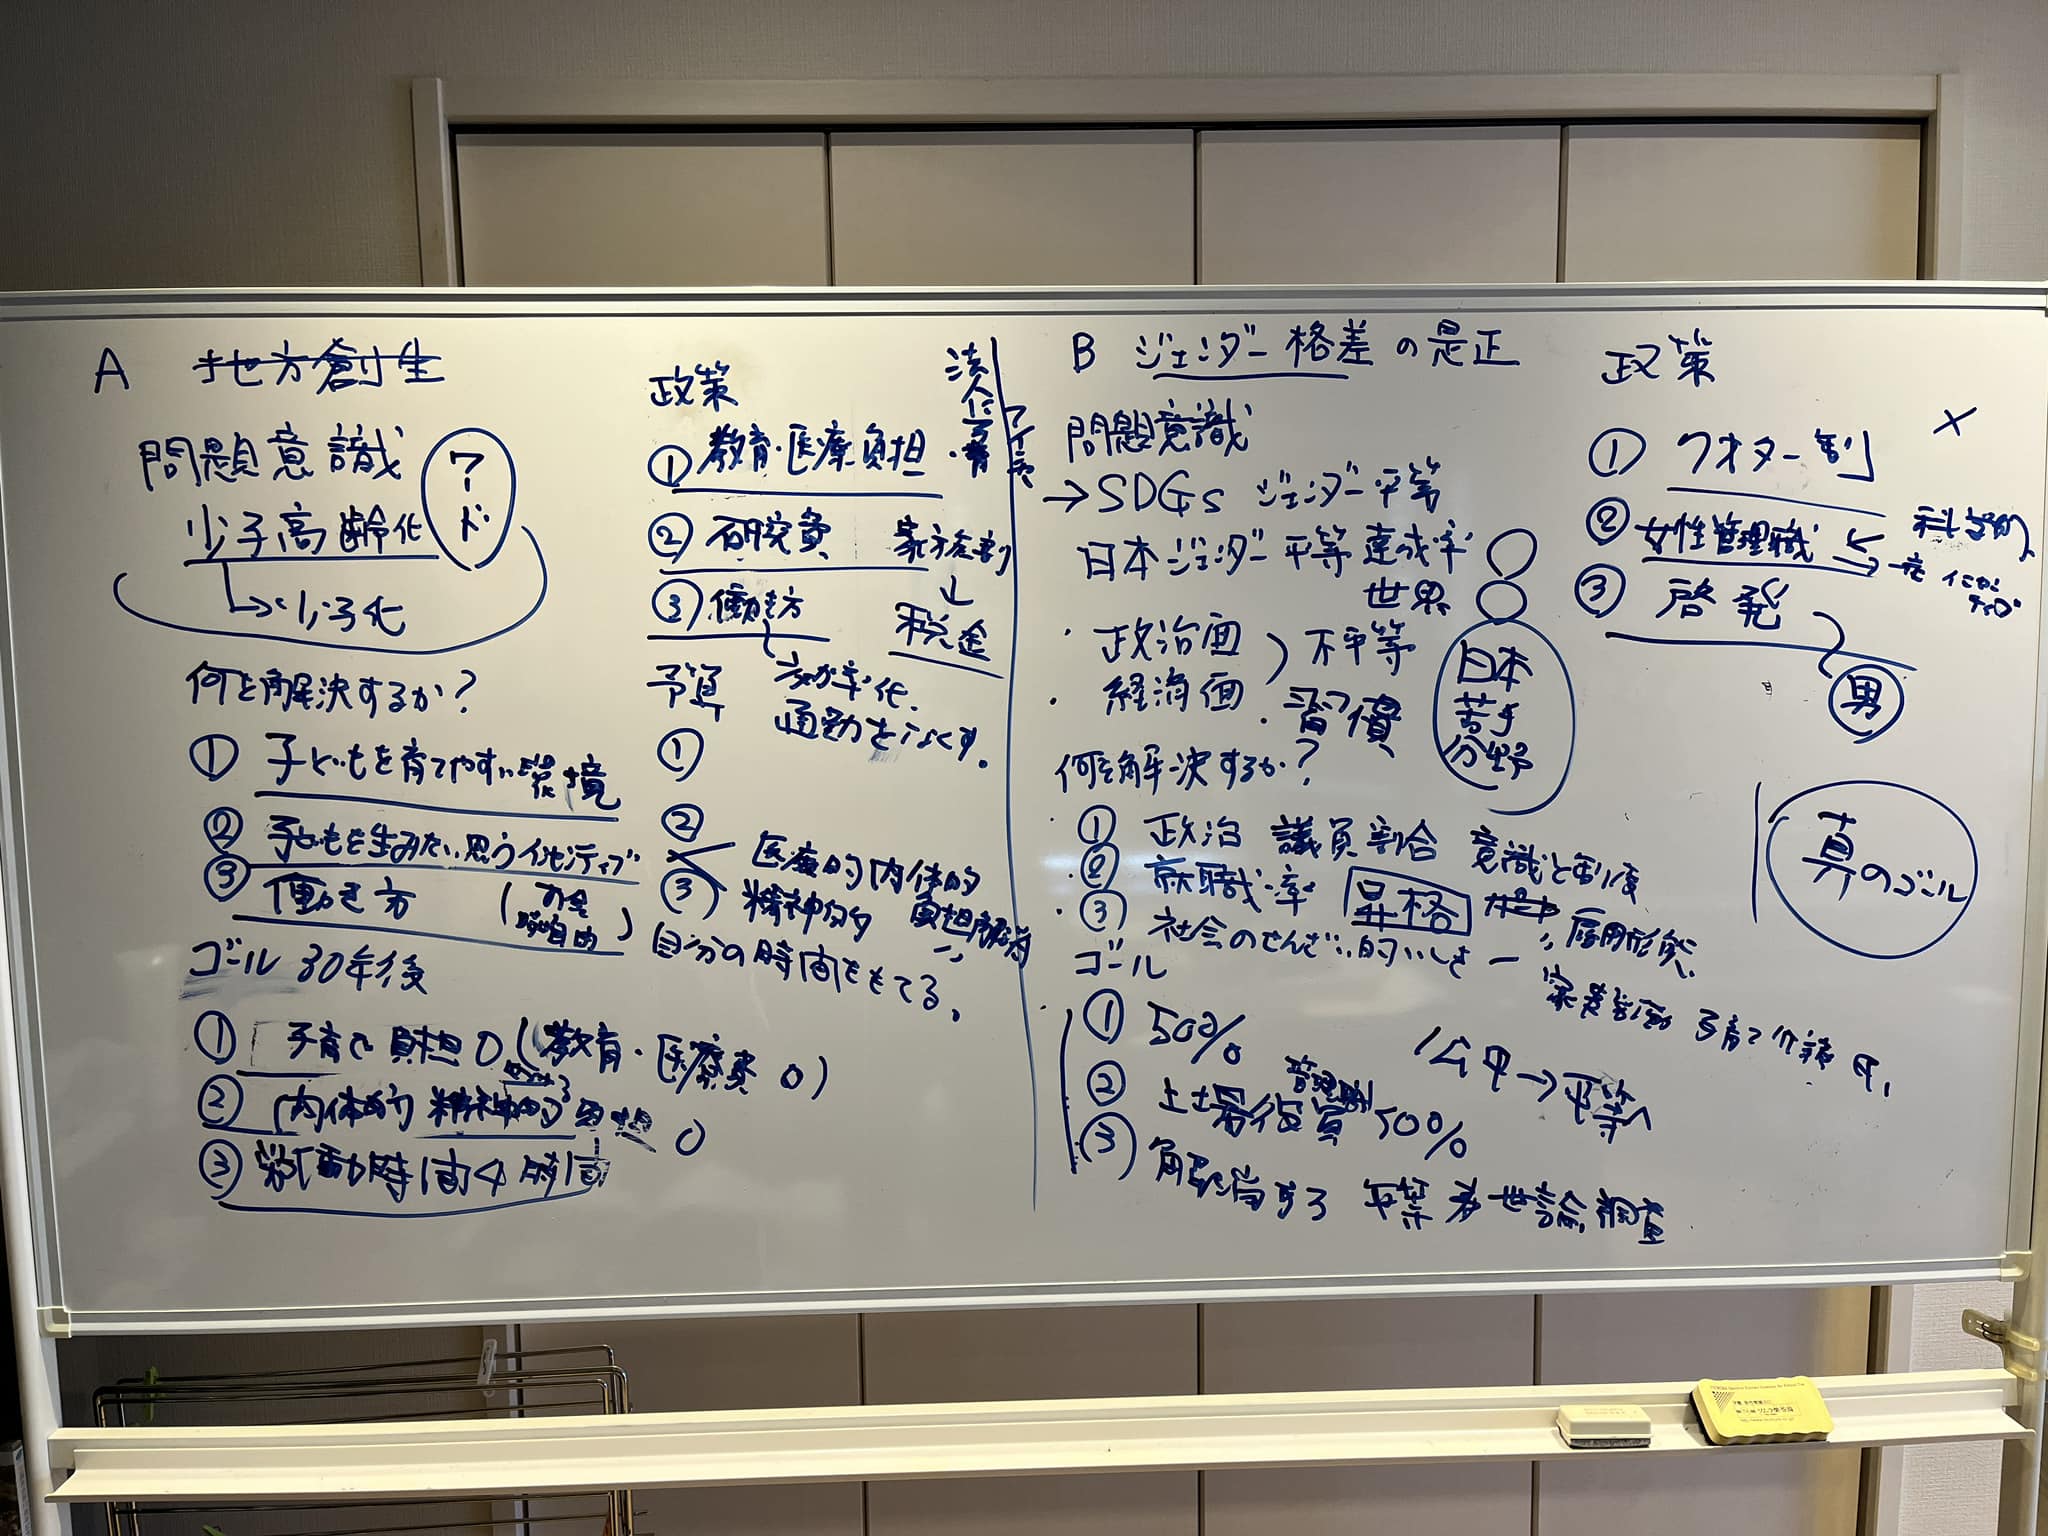 A 地方創生
問題意識
ワード
少子高齢化
→少子化
何を解決するか?
① 子どもを育てやすい環境
② 子どもを生みたい思うインセンティブ
③ 働き方 (お金 時間自由)
ゴール 30年後
① 子育て負担0 (教育・医療費0)
② 肉体的 精神的 負担 0
③ 労働時間4時間
政策
① 教育・医療負担
② 研究費
③ 働き方
効率化
通勤をなくす。
税金
予算
①
②
③
医療的 肉体的
精神的 負担解消
自分の時間をもてる。
B ジェンダー格差の是正
問題意識
→SDGs ジェンダー平等
日本ジェンダー平等達成率
世界
・政治面
・経済面
不平等
・習慣
日本
苦手
分野
何を解決するか?
① 政治 議員割合 意識と制度
② 就職率 昇格 雇用形態
③ 社会のせんざい的いしき
ゴール
① 50%
② 上場役員 管理職 50%
③ 解消する 平等 世論調査
公平→平等
政策
① クオター制
② 女性管理職
③ 啓発
男
真のゴール